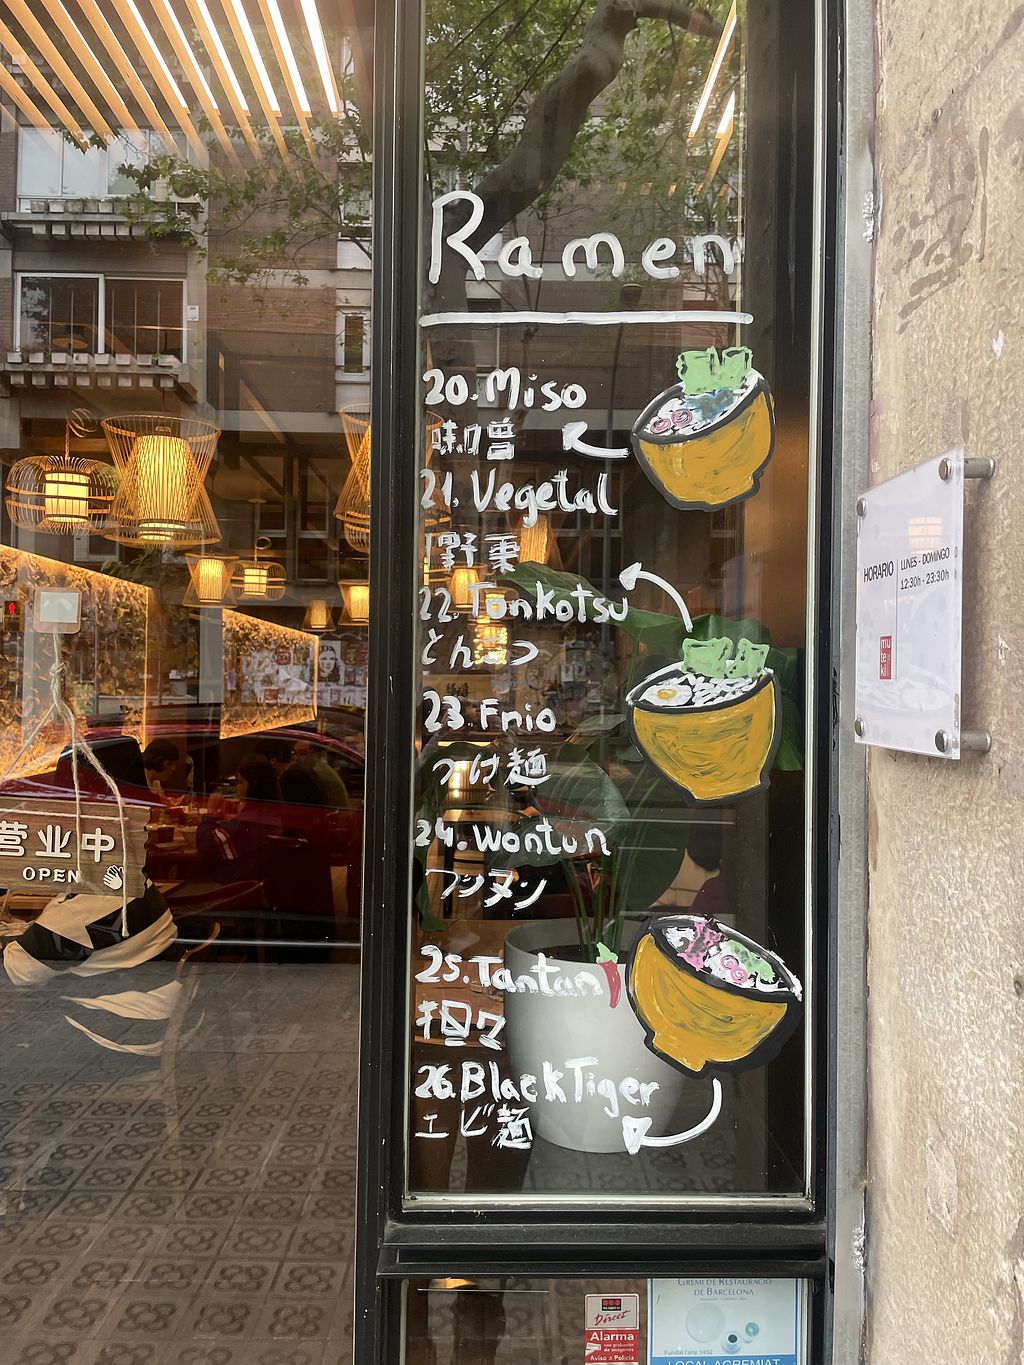 Ramen
20. Miso
味噌
21. Vegetal
野菜
22. Tonkotsu
とんこつ
23. Frio
つけ麺
24. Wontun
ワンタン
25. Tantan
担々
26. Black Tiger
エビ麺
HORARIO
LUNES - DOMINGO
12:30h - 23:30h
mu
te
ki
营业中
OPEN
GREMI DE RESTAURACIÓ
DE BARCELONA
Fundat l'any 1452
LOCAL AGREMIAT
Direct
Alarma
con grabación
de imágenes
Aviso a Policía